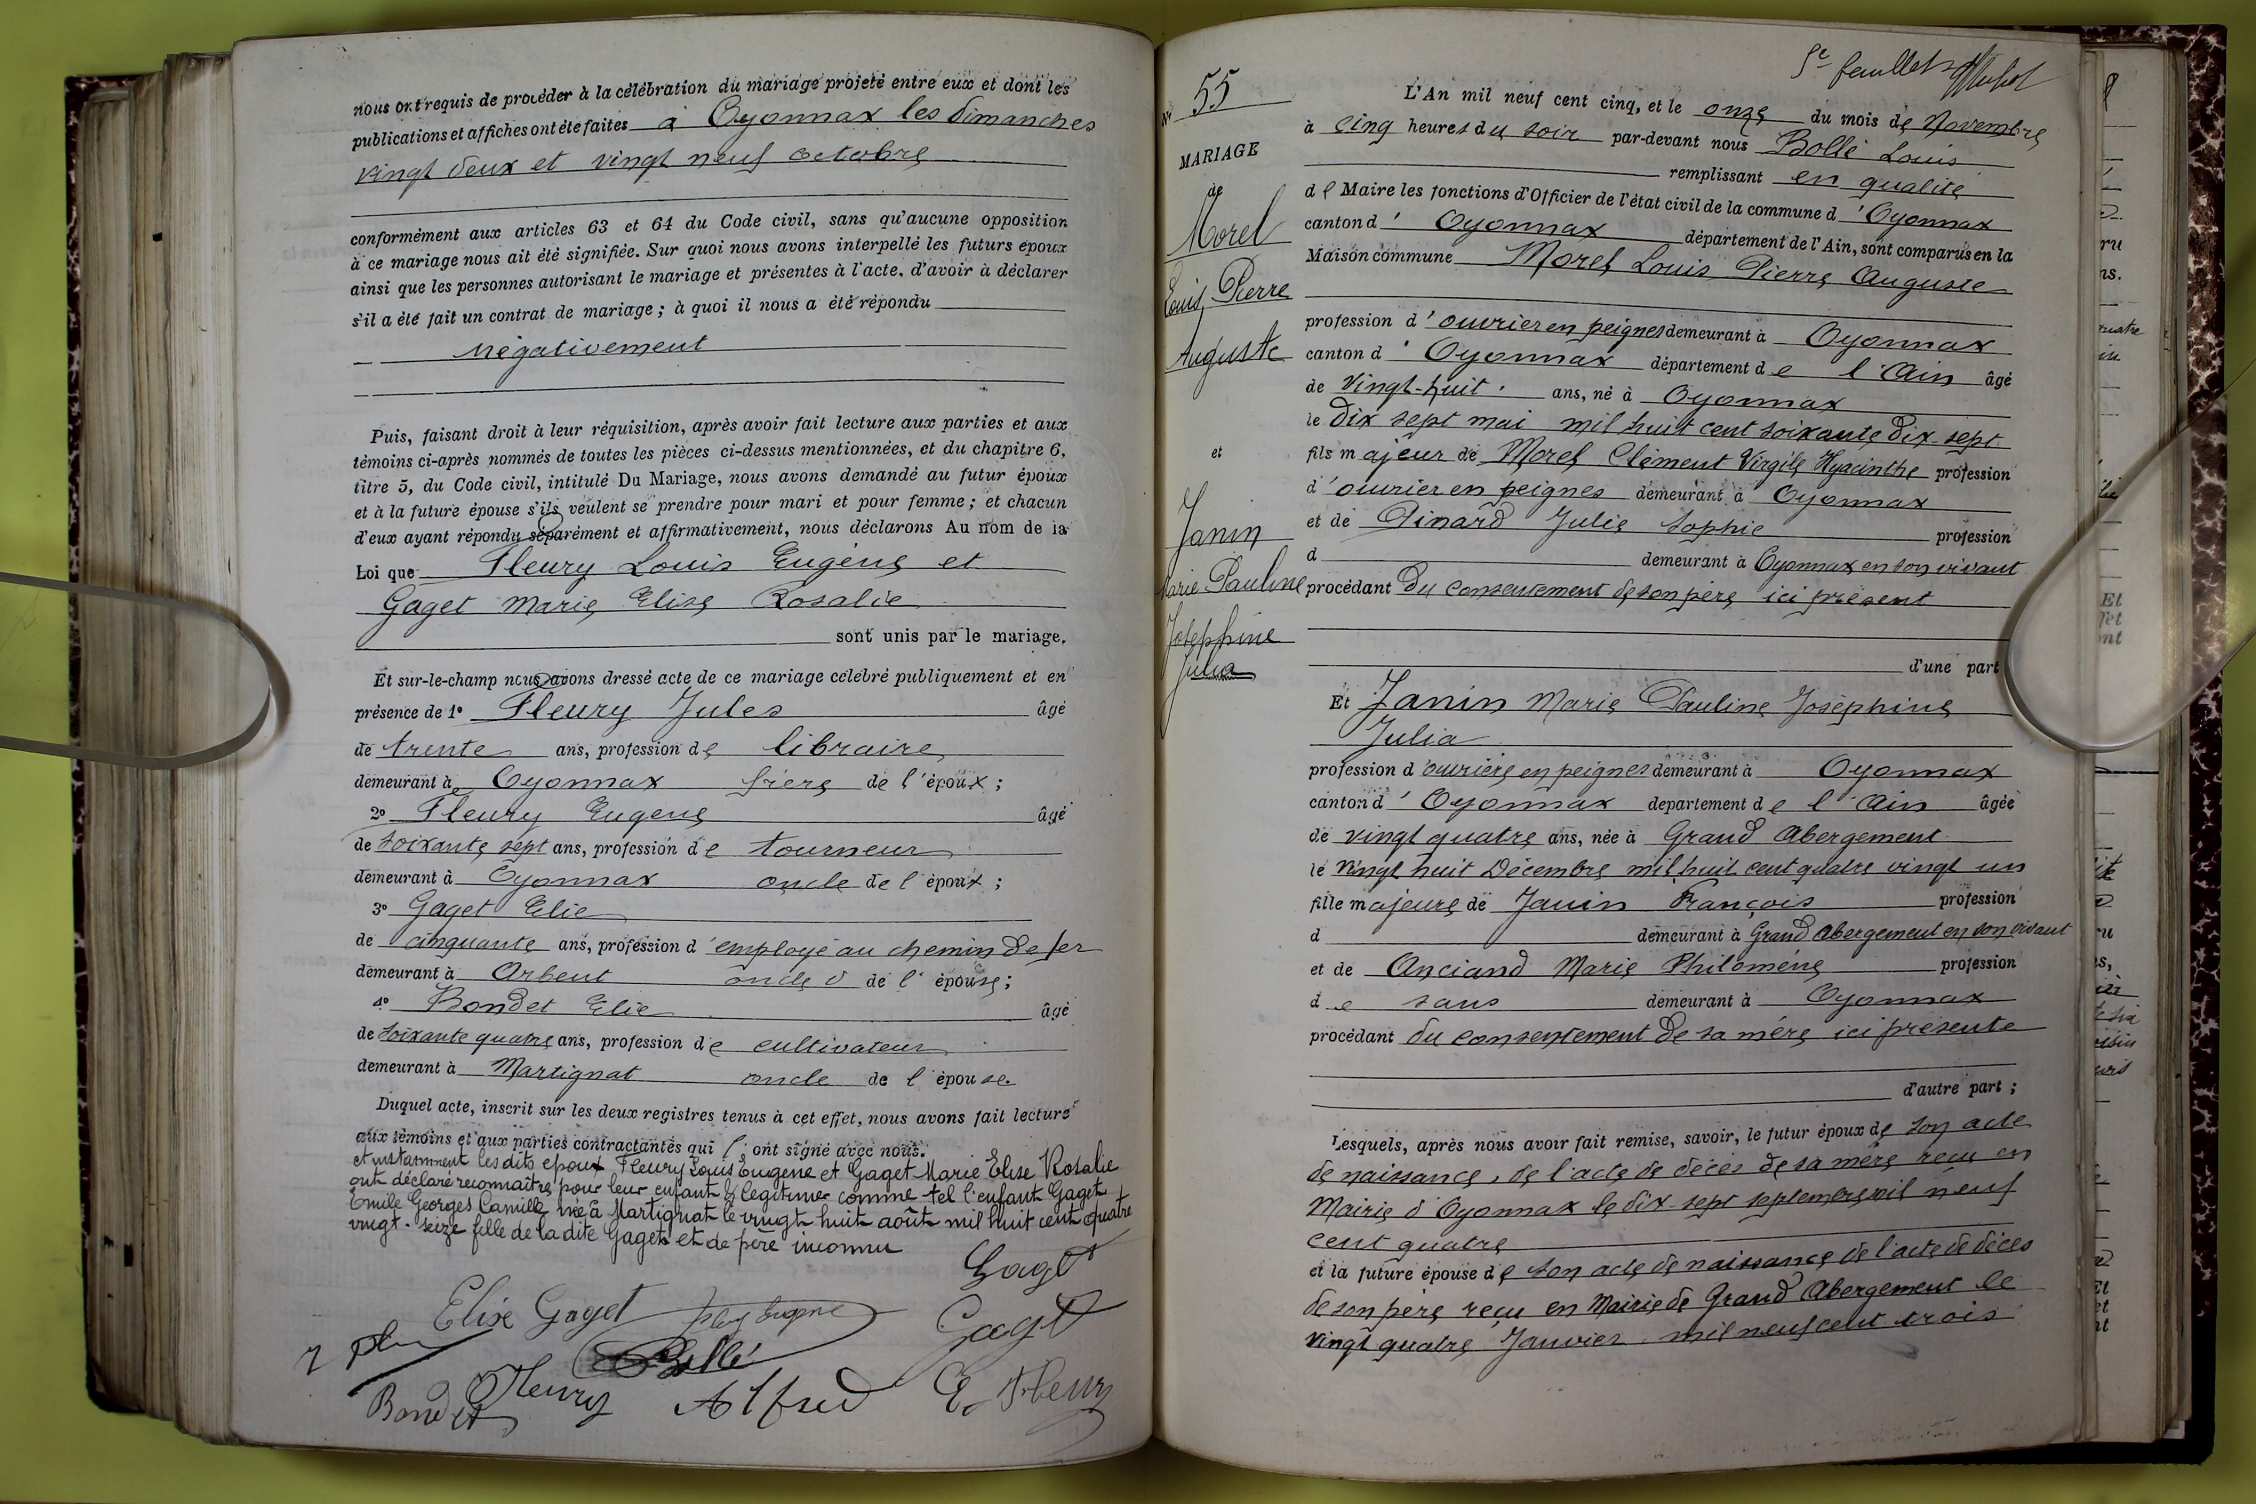 nous ont requis de procéder à la célébration du mariage projeté entre eux et dont les
publications et affiches ont été faites à Oyonnax les dimanches
vingt deux et vingt neuf octobre
conformément aux articles 63 et 64 du Code civil, sans qu'aucune opposition
à ce mariage nous ait été signifiée. Sur quoi nous avons interpellé les futurs époux
ainsi que les personnes autorisant le mariage et présentes à l'acte, d'avoir à déclarer
s'il a été fait un contrat de mariage ; à quoi il nous a été répondu
négativement
Puis, faisant droit à leur réquisition, après avoir fait lecture aux parties et aux
témoins ci-après nommés de toutes les pièces ci-dessus mentionnées, et du chapitre 6,
titre 5, du Code civil, intitulé Du Mariage, nous avons demandé au futur époux
et à la future épouse s'ils veulent se prendre pour mari et pour femme ; et chacun
d'eux ayant répondu séparément et affirmativement, nous déclarons Au nom de la
Loi que Fleury Louis Eugène et
Gaget Marie Elise Rosalie
sont unis par le mariage.
Et sur-le-champ nous avons dressé acte de ce mariage célébré publiquement et en
présence de 1° Fleury Jules âgé
de trente ans, profession de libraire
demeurant à Oyonnax frère de l'époux ;
2° Fleury Eugène âgé
de soixante sept ans, profession de tourneur
demeurant à Oyonnax oncle de l'époux ;
3° Gaget Elie
de cinquante ans, profession d'employé au chemin de fer
demeurant à Arbent oncle de l'épouse ;
4° Bondet Elie âgé
de soixante quatre ans, profession de cultivateur
demeurant à Martignat oncle de l'épouse.
Duquel acte, inscrit sur les deux registres tenus à cet effet, nous avons fait lecture
aux témoins et aux parties contractantes qui l'ont signé avec nous.
et instamment les dits époux Fleury Louis Eugène et Gaget Marie Elise Rosalie
ont déclaré reconnaître pour leur enfant & légitimer comme tel l'enfant Gaget
Emile Georges Camille né à Martignat le vingt huit août mil huit cent quatre
vingt-seize fille de la dite Gaget et de père inconnu
Gaget
Elise Gaget Fleury Eugène Gaget
Bollé
Bondet Fleury Alfred E. Fleury
5e feuillet
N° 55
MARIAGE
de
Morel
Louis Pierre
Auguste
et
Janin
Marie Pauline
Joséphine
Julia
L'An mil neuf cent cinq, et le onze du mois de Novembre
à cinq heures du soir par-devant nous Bollé Louis
remplissant en qualité
de Maire les fonctions d'Officier de l'état civil de la commune d'Oyonnax
canton d'Oyonnax département de l'Ain, sont comparus en la
Maison commune Morel Louis Pierre Auguste
profession d'ouvrier en peignes demeurant à Oyonnax
canton d'Oyonnax département de l'Ain âgé
de vingt-huit ans, né à Oyonnax
le dix sept mai mil huit cent soixante dix-sept
fils majeur de Morel Clément Virgile Hyacinthe profession
d'ouvrier en peignes demeurant à Oyonnax
et de Pinard Julie Sophie profession
d demeurant à Oyonnax en son vivant
procédant du consentement de son père ici présent
d'une part
Et Janin Marie Pauline Joséphine
Julia
profession d'ouvrière en peignes demeurant à Oyonnax
canton d'Oyonnax département de l'Ain âgée
de vingt quatre ans, née à Grand Abergement
le vingt huit Décembre mil huit cent quatre vingt un
fille majeure de Janin François profession
d demeurant à Grand Abergement en son vivant
et de Anciand Marie Philomène profession
de sans demeurant à Oyonnax
procédant du consentement de sa mère ici présente
d'autre part ;
Lesquels, après nous avoir fait remise, savoir, le futur époux de son acte
de naissance, de l'acte de décès de sa mère reçu en
Mairie d'Oyonnax le dix-sept septembre mil neuf
cent quatre
et la future épouse de son acte de naissance de l'acte de décès
de son père reçu en Mairie de Grand Abergement le
vingt quatre Janvier mil neuf cent trois